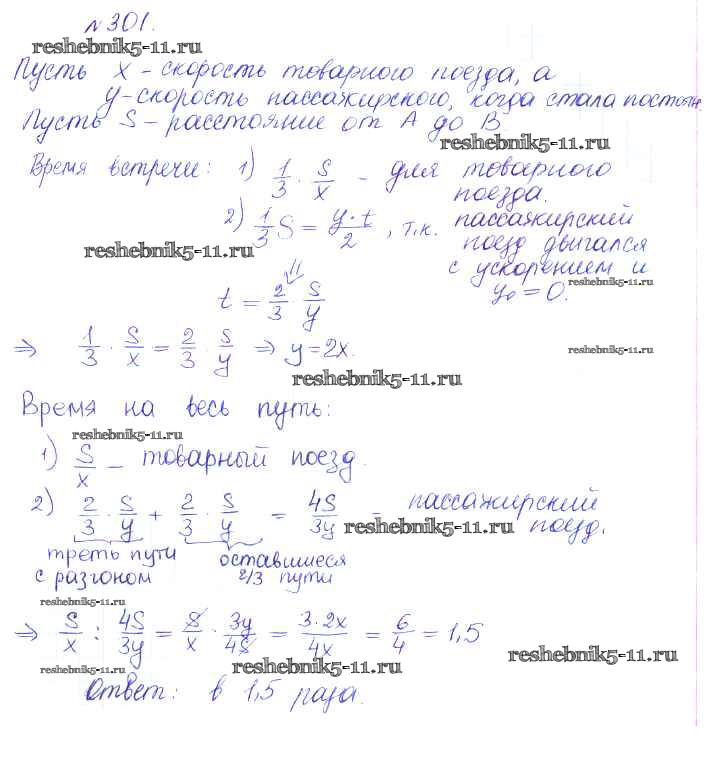 №301.
reshebnik5-11.ru
Пусть x - скорость товарного поезда, а
y-скорость пассажирского, когда стала постоян.
Пусть S - расстояние от А до В.
reshebnik5-11.ru
Время встречи: 1) 1/3 · S/x - для товарного
поезда.
2) 1/3 S = y·t/2, т.к. пассажирский
reshebnik5-11.ru
поезд двигался
с ускорением и
reshebnik5-11.ru
y₀ = 0.
⇓
t = 2/3 · S/y
⇒ 1/3 · S/x = 2/3 · S/y ⇒ y = 2x.
reshebnik5-11.ru
reshebnik5-11.ru
Время на весь путь:
reshebnik5-11.ru
1) S/x - товарный поезд.
2) 2/3 · S/y + 2/3 · S/y = 4S/3y - пассажирский
reshebnik5-11.ru
поезд.
треть пути оставшиеся
с разгоном 2/3 пути
reshebnik5-11.ru
⇒ S/x : 4S/3y = S/x · 3y/4S = 3·2x/4x = 6/4 = 1,5
reshebnik5-11.ru
reshebnik5-11.ru
reshebnik5-11.ru
Ответ: в 1,5 раза.